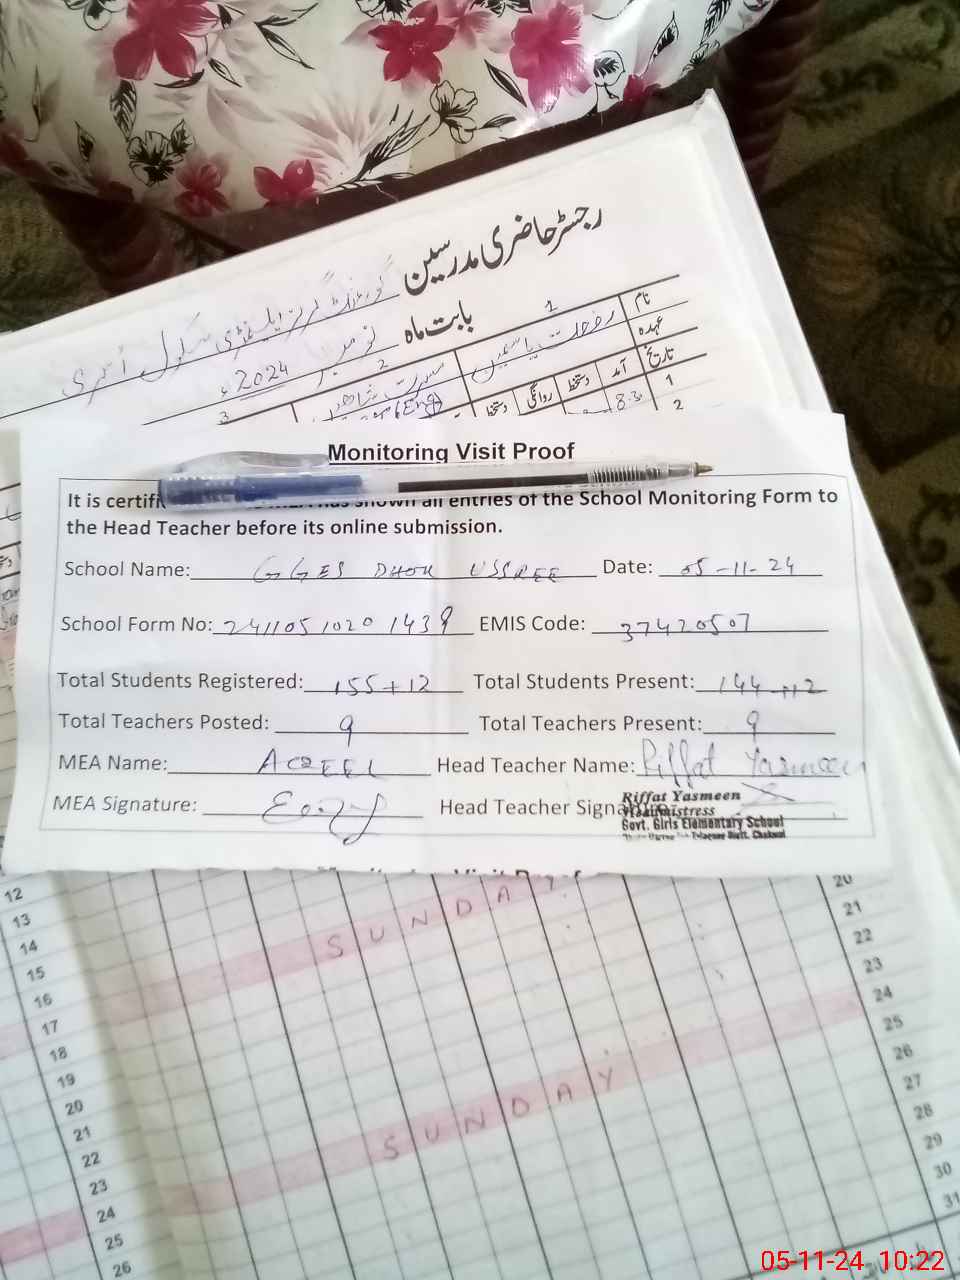 رجسٹر حاضری مدرسین گورنمنٹ گرلز ایلیمنٹری سکول اسری
بابت ماہ نومبر 2024ء
نام 1 رفعت یاسمین 2 مسرت شاھین 3
عہدہ
تاریخ آمد دستخط روانگی دستخط
1
2
Monitoring Visit Proof
It is certifi has shown all entries of the School Monitoring Form to
the Head Teacher before its online submission.
School Name: GGES DHOK USSREE Date: 05-11-24
School Form No: 2411051020 1439 EMIS Code: 37420507
Total Students Registered: 155+12 Total Students Present: 144+12
Total Teachers Posted: 9 Total Teachers Present: 9
MEA Name: Head Teacher Name: Riffat Yasmeen
MEA Signature: Head Teacher Signature:
Riffat Yasmeen
Headmistress
Govt. Girls Elementary School
Chakwal
SUNDAY
SUNDAY
12
13
14
15
16
17
18
19
20
21
22
23
24
25
26
20
21
22
23
24
25
26
27
28
29
30
31
05-11-24 10:22